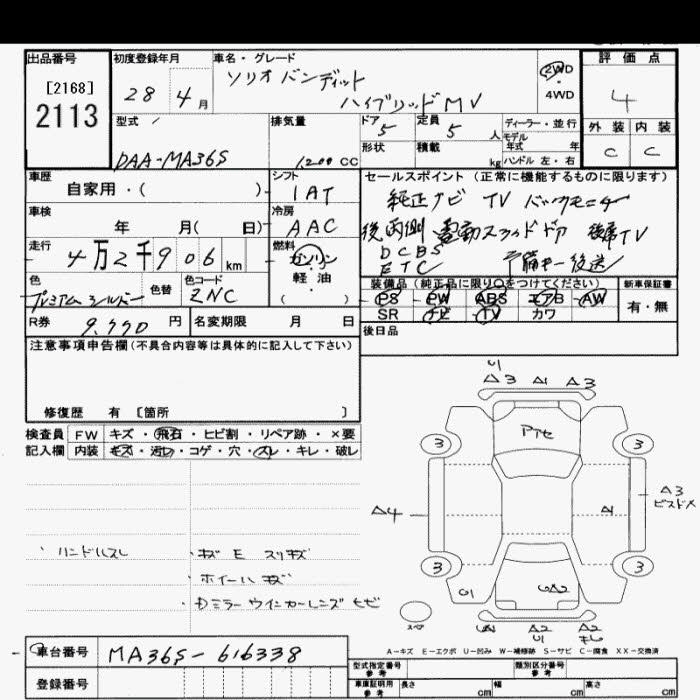 出品番号
[2168]
2113
初度登録年月
28 4月
車名・グレード
ソリオバンディット
ハイブリッドMV
2WD
・
4WD
評価点
4
型式
DAA-MA36S
排気量
1200 CC
ドア
5
定員
5 人
形状
積載
kg
ディーラー・並行
モデル
年式 年
ハンドル 左・右
外装 内装
C C
車歴
自家用・( )
シフト
1AT
セールスポイント(正常に機能するものに限ります)
純正ナビ TV バックモニター
後両側電動スライドドア 後席TV
DCBS
ETC
予備キー後送
車検
年 月( 日)
冷房
AAC
走行
4万2千906km
燃料
ガソリン
・
軽油
( )
色
プレミアムシルバー
色替
色コード
ZNC
装備品(純正品に限り○をつけてください)
PS PW ABS エアB AW
SR ナビ TV カワ
新車保証書
有・無
R券 9,770円
名変期限 月 日
後日品
注意事項申告欄(不具合内容等は具体的に記入して下さい)
修復歴 有 〔箇所 〕
検査員 FW キズ・飛石・ヒビ割・リペア跡・×要
記入欄 内装 キズ・汚レ・コゲ・穴・スレ・キレ・破レ
・ハンドルスレ
・キズ E スリキズ
・ホイールキズ
・Dミラーウインカーレンズヒビ
U1
A3 A1 A3
アトセ
3 3
A4
A1
A3
ビスドメ
3 3
U1
UA2
スペ
UA
A2
U1
A2
キレ
A-キズ E-エクボ U-凹み W-補修跡 S-サビ C-腐食 XX-交換済
車台番号 MA36S-616338
登録番号
型式指定番号
参考
類別区分番号
参考
車庫証明用
参考
長さ cm 幅 cm 高さ cm